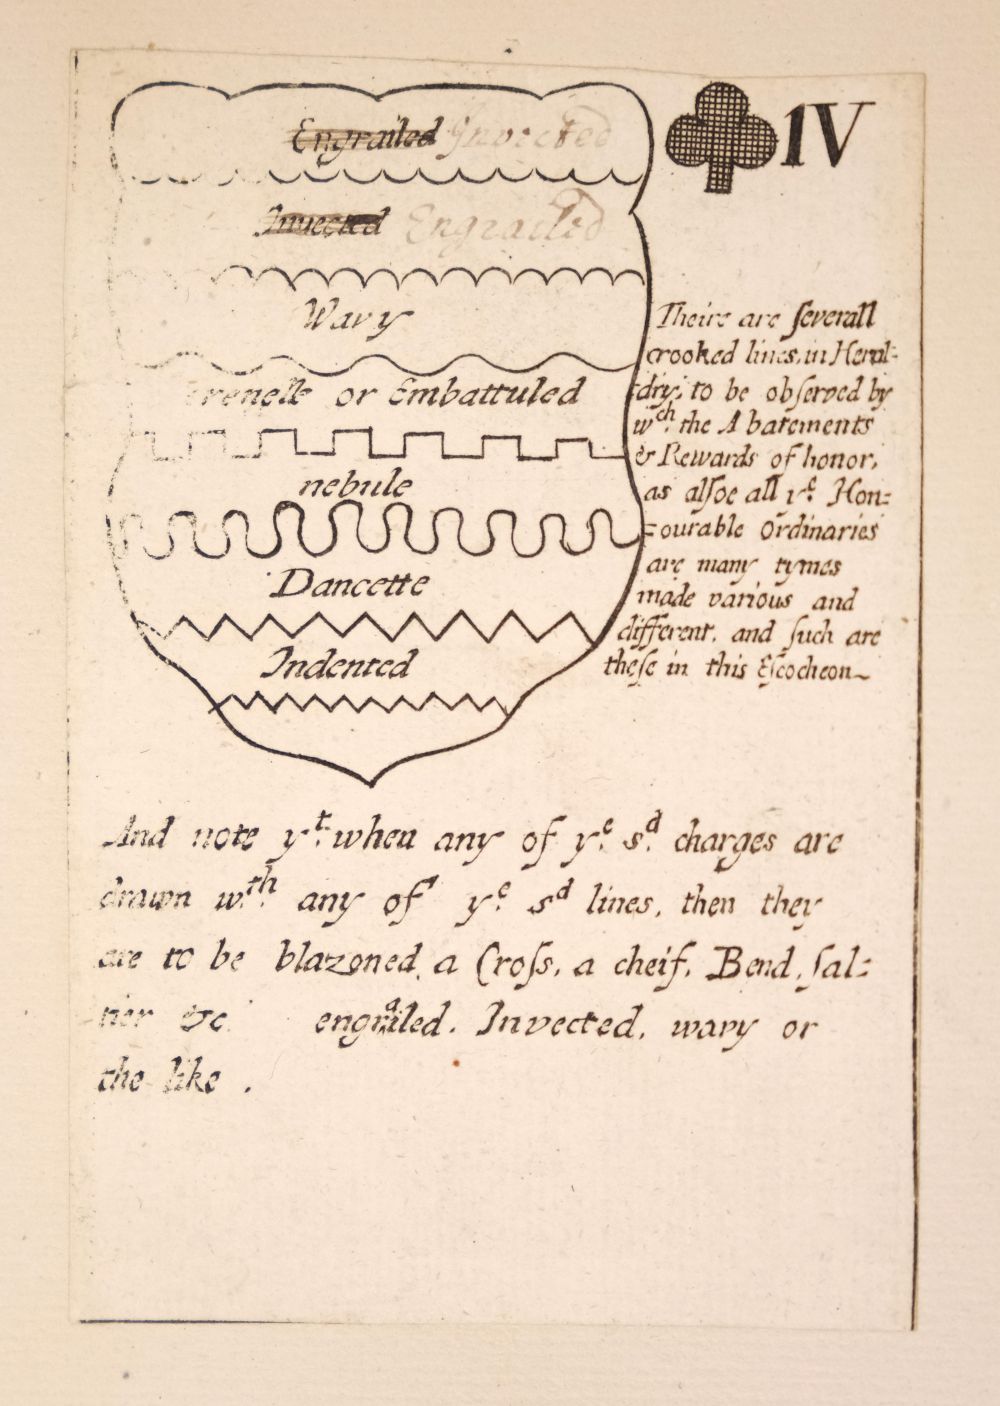 IV
Engrailed Invected
Invected Engrailed
Wavy
Crenelle or Embattuled
nebule
Dancette
Indented
Theire are ſeverall
crooked lines, in Heral=
dry, to be obſerved by
wch. the Abatements
& Rewards of honor,
as alſoe all ye. Hon=
=ourable Ordinaries
are many tymes
made various and
different, and ſuch are
theſe in this Eſcocheon
And note yt. when any of ye. sd. charges are
drawn wth. any of ye. sd lines, then they
are to be blazoned, a Croſs, a cheif, Bend, ſal=
tier &c engrailed, Invected, wavy or
the like .